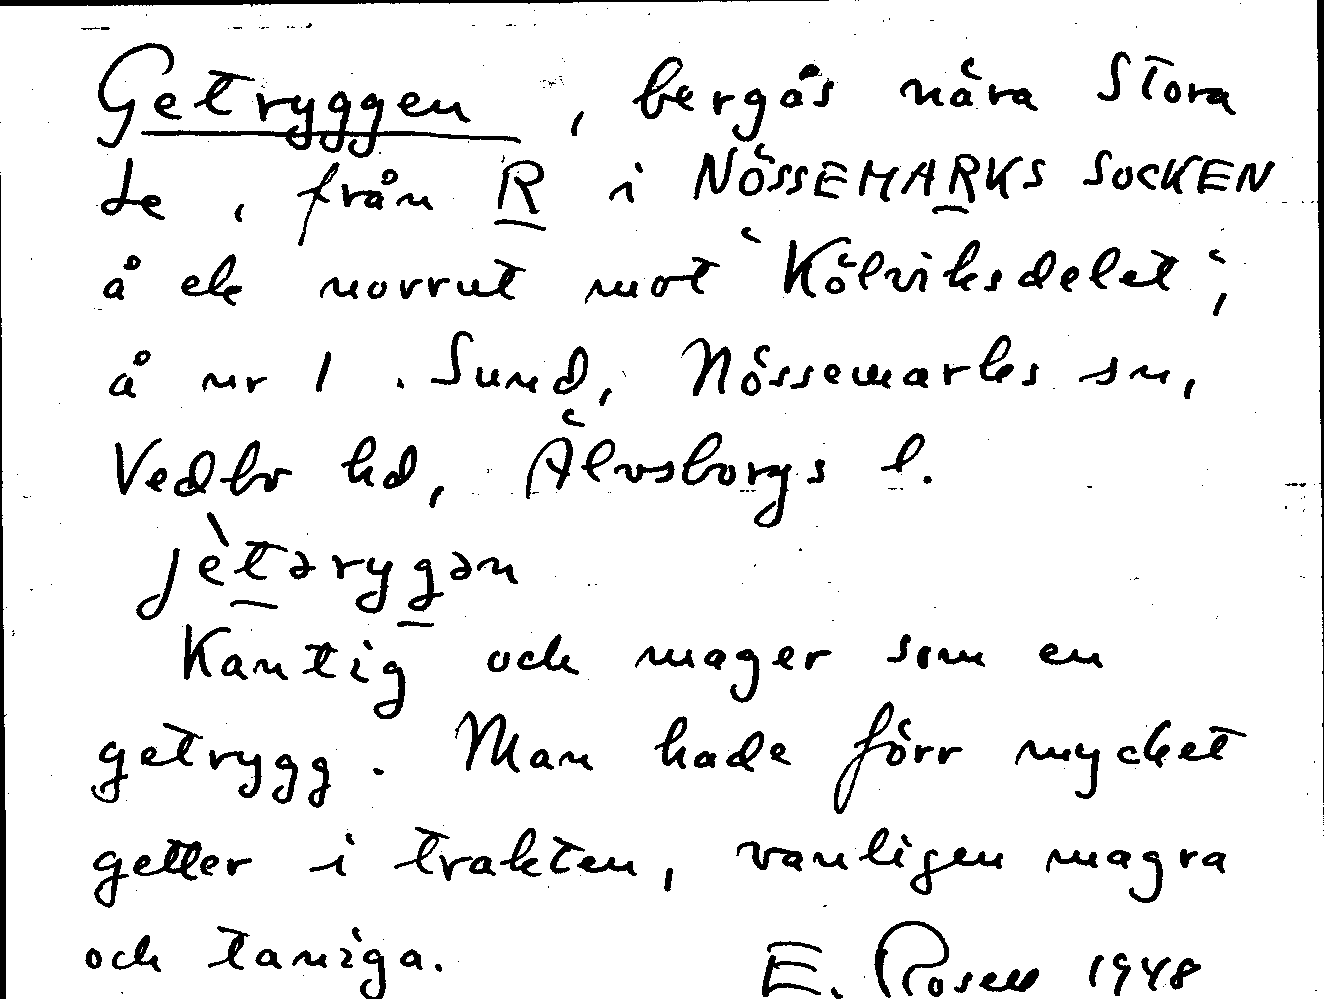 Getryggen, bergås nära Stora
Le, från R i NÖSSEMARKS SOCKEN
å ek norrut mot "Kölviksdelet",
å nr 1. Sund, Nössemarks sn,
Vedbo hd, Älvsborgs l.
jètərygən
Kantig och mager som en
getrygg. Man hade förr mycket
getter i trakten, vanligen magra
och taniga.
E. Rosell 1948